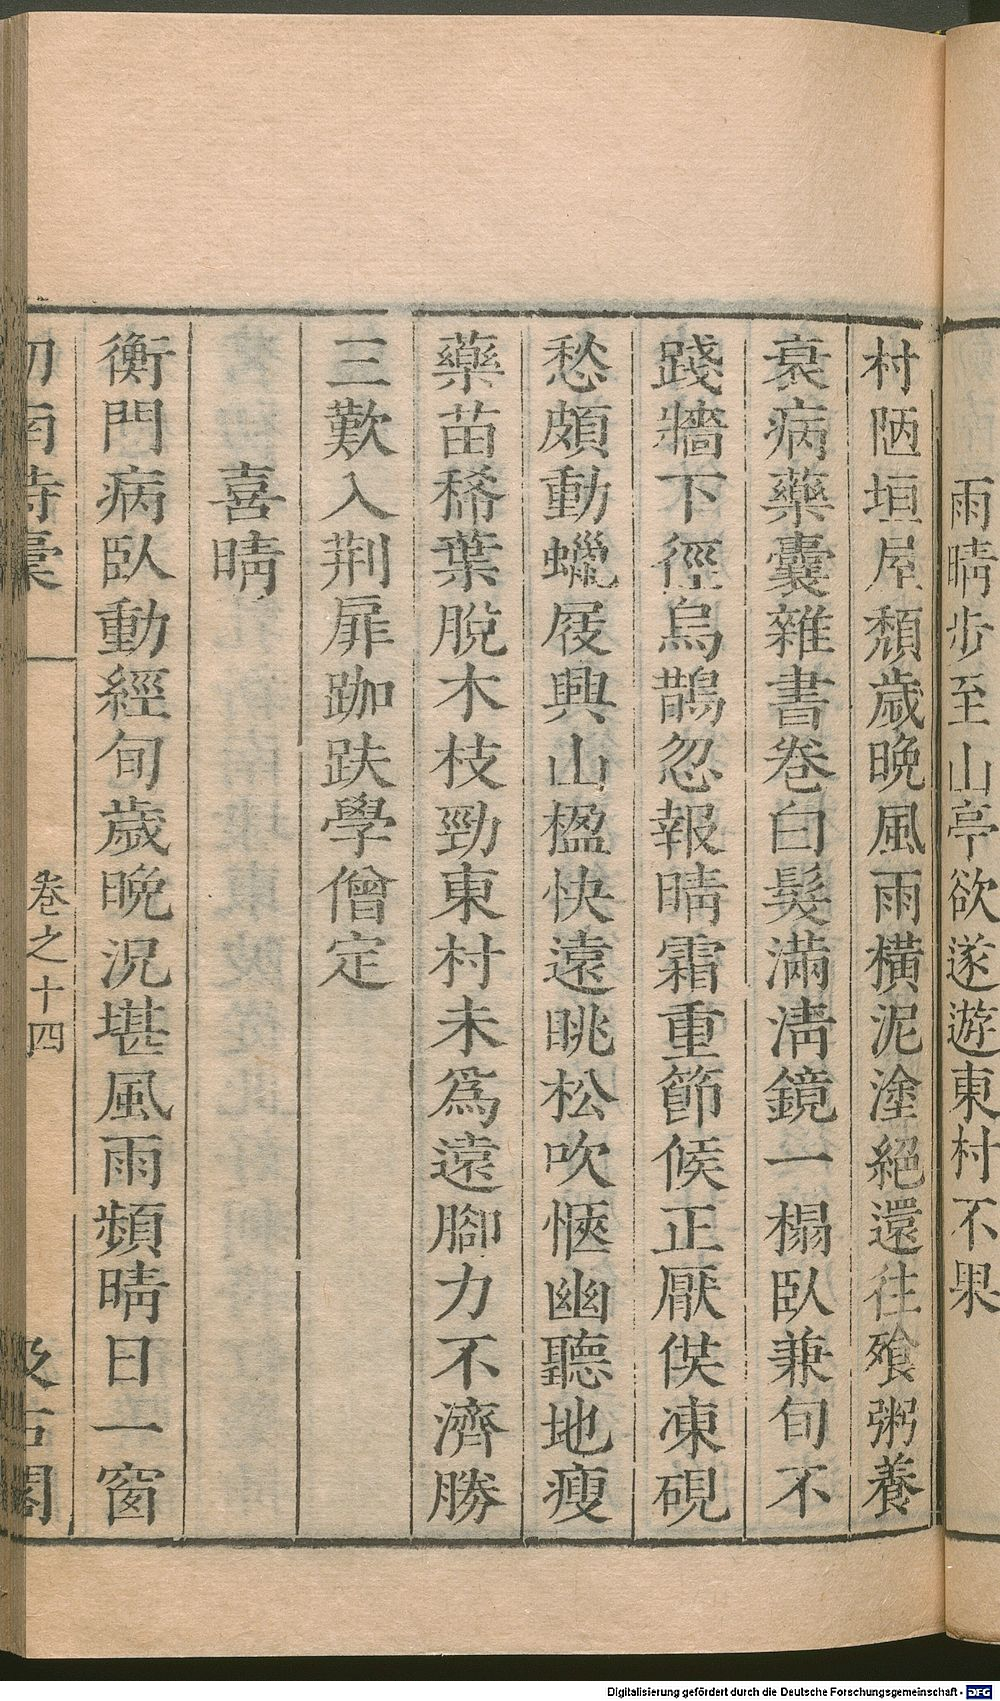 雨晴步至山亭欲遂遊東村不果
村陋垣屋頹歲晚風雨橫泥塗絕還往飱粥養
衰病藥囊雜書卷白髮滿淸鏡一榻臥兼旬不
踐牆下徑烏鵲忽報晴霜重節候正厭俟凍硯
愁頗動蠟屐興山楹快遠眺松吹愜幽聽地瘦
藥苗稀葉脫木枝勁東村未爲遠腳力不濟勝
三歎入荆扉跏趺學僧定
喜晴
衡門病臥動經旬歲晚況堪風雨頻晴日一窗
卷之十四
汲古閣
Digitalisierung gefördert durch die Deutsche Forschungsgemeinschaft - DFG